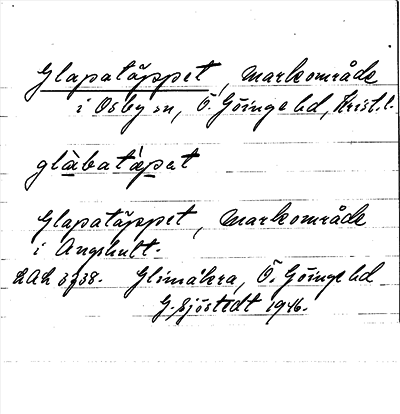 Glapatäppet, markområde
i Osby sn, Ö Göinge hd, Krist. l.
glàbatä̀pat
Glapatäppet, markområde
i Angshult.
LAL 3738. Glimåkra, Ö. Göinge hd
G. Sjöstedt 1946.